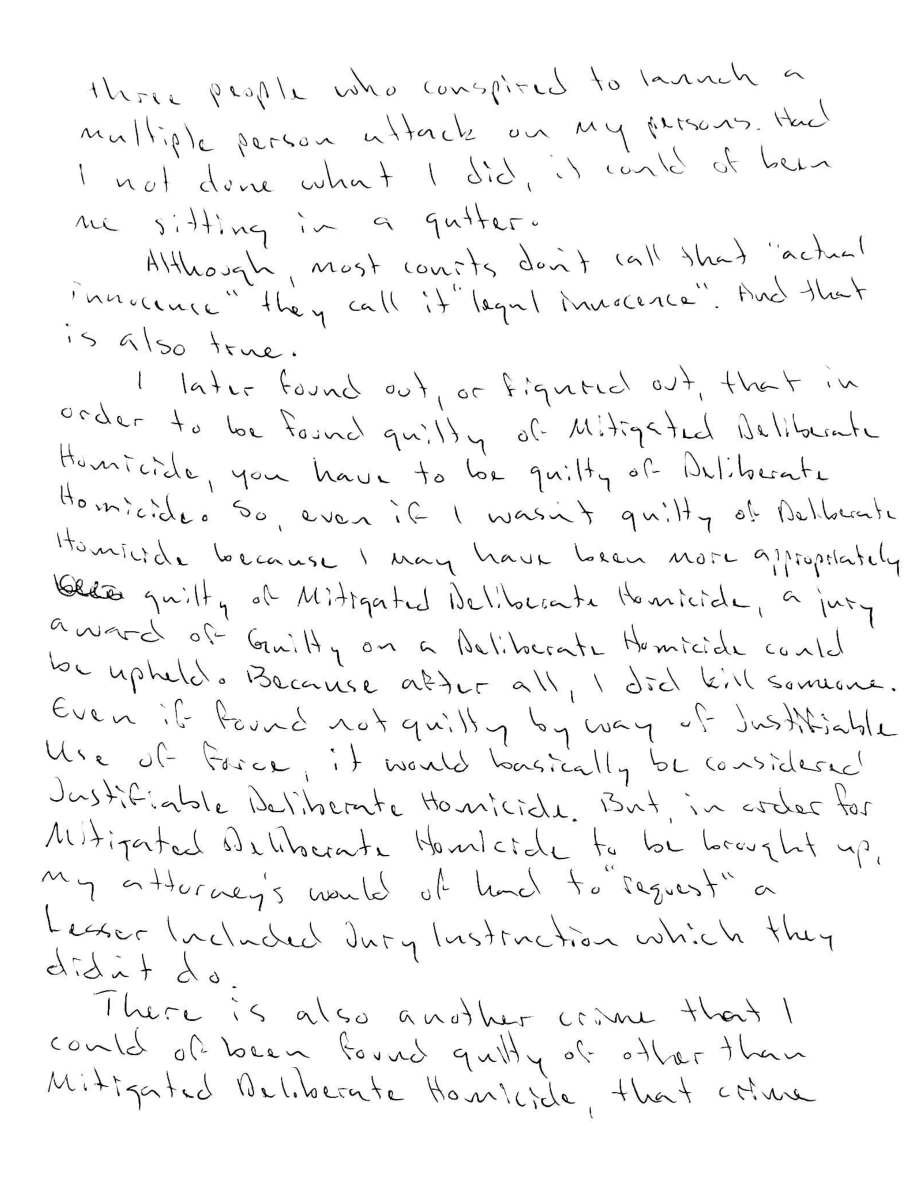 three people who conspired to launch a
multiple person attack on my persons. Had
I not done what I did, it could of been
me sitting in a gutter.
Although, most courts don't call that "actual
innocence" they call it "legal innocence". And that
is also true.
I later found out, or figured out, that in
order to be found guilty of Mitigated Deliberate
Homicide, you have to be guilty of Deliberate
Homicide. So, even if I wasn't guilty of Deliberate
Homicide because I may have been more appropriately
guilty of Mitigated Deliberate Homicide, a jury
award of Guilty on a Deliberate Homicide could
be upheld. Because after all, I did kill someone.
Even if found not guilty by way of Justifiable
Use of Force, it would basically be considered
Justifiable Deliberate Homicide. But, in order for
Mitigated Deliberate Homicide to be brought up,
my attorney's would of had to "request" a
Lesser Included Jury Instruction which they
didn't do.
There is also another crime that I
could of been found guilty of other than
Mitigated Deliberate Homicide, that crime